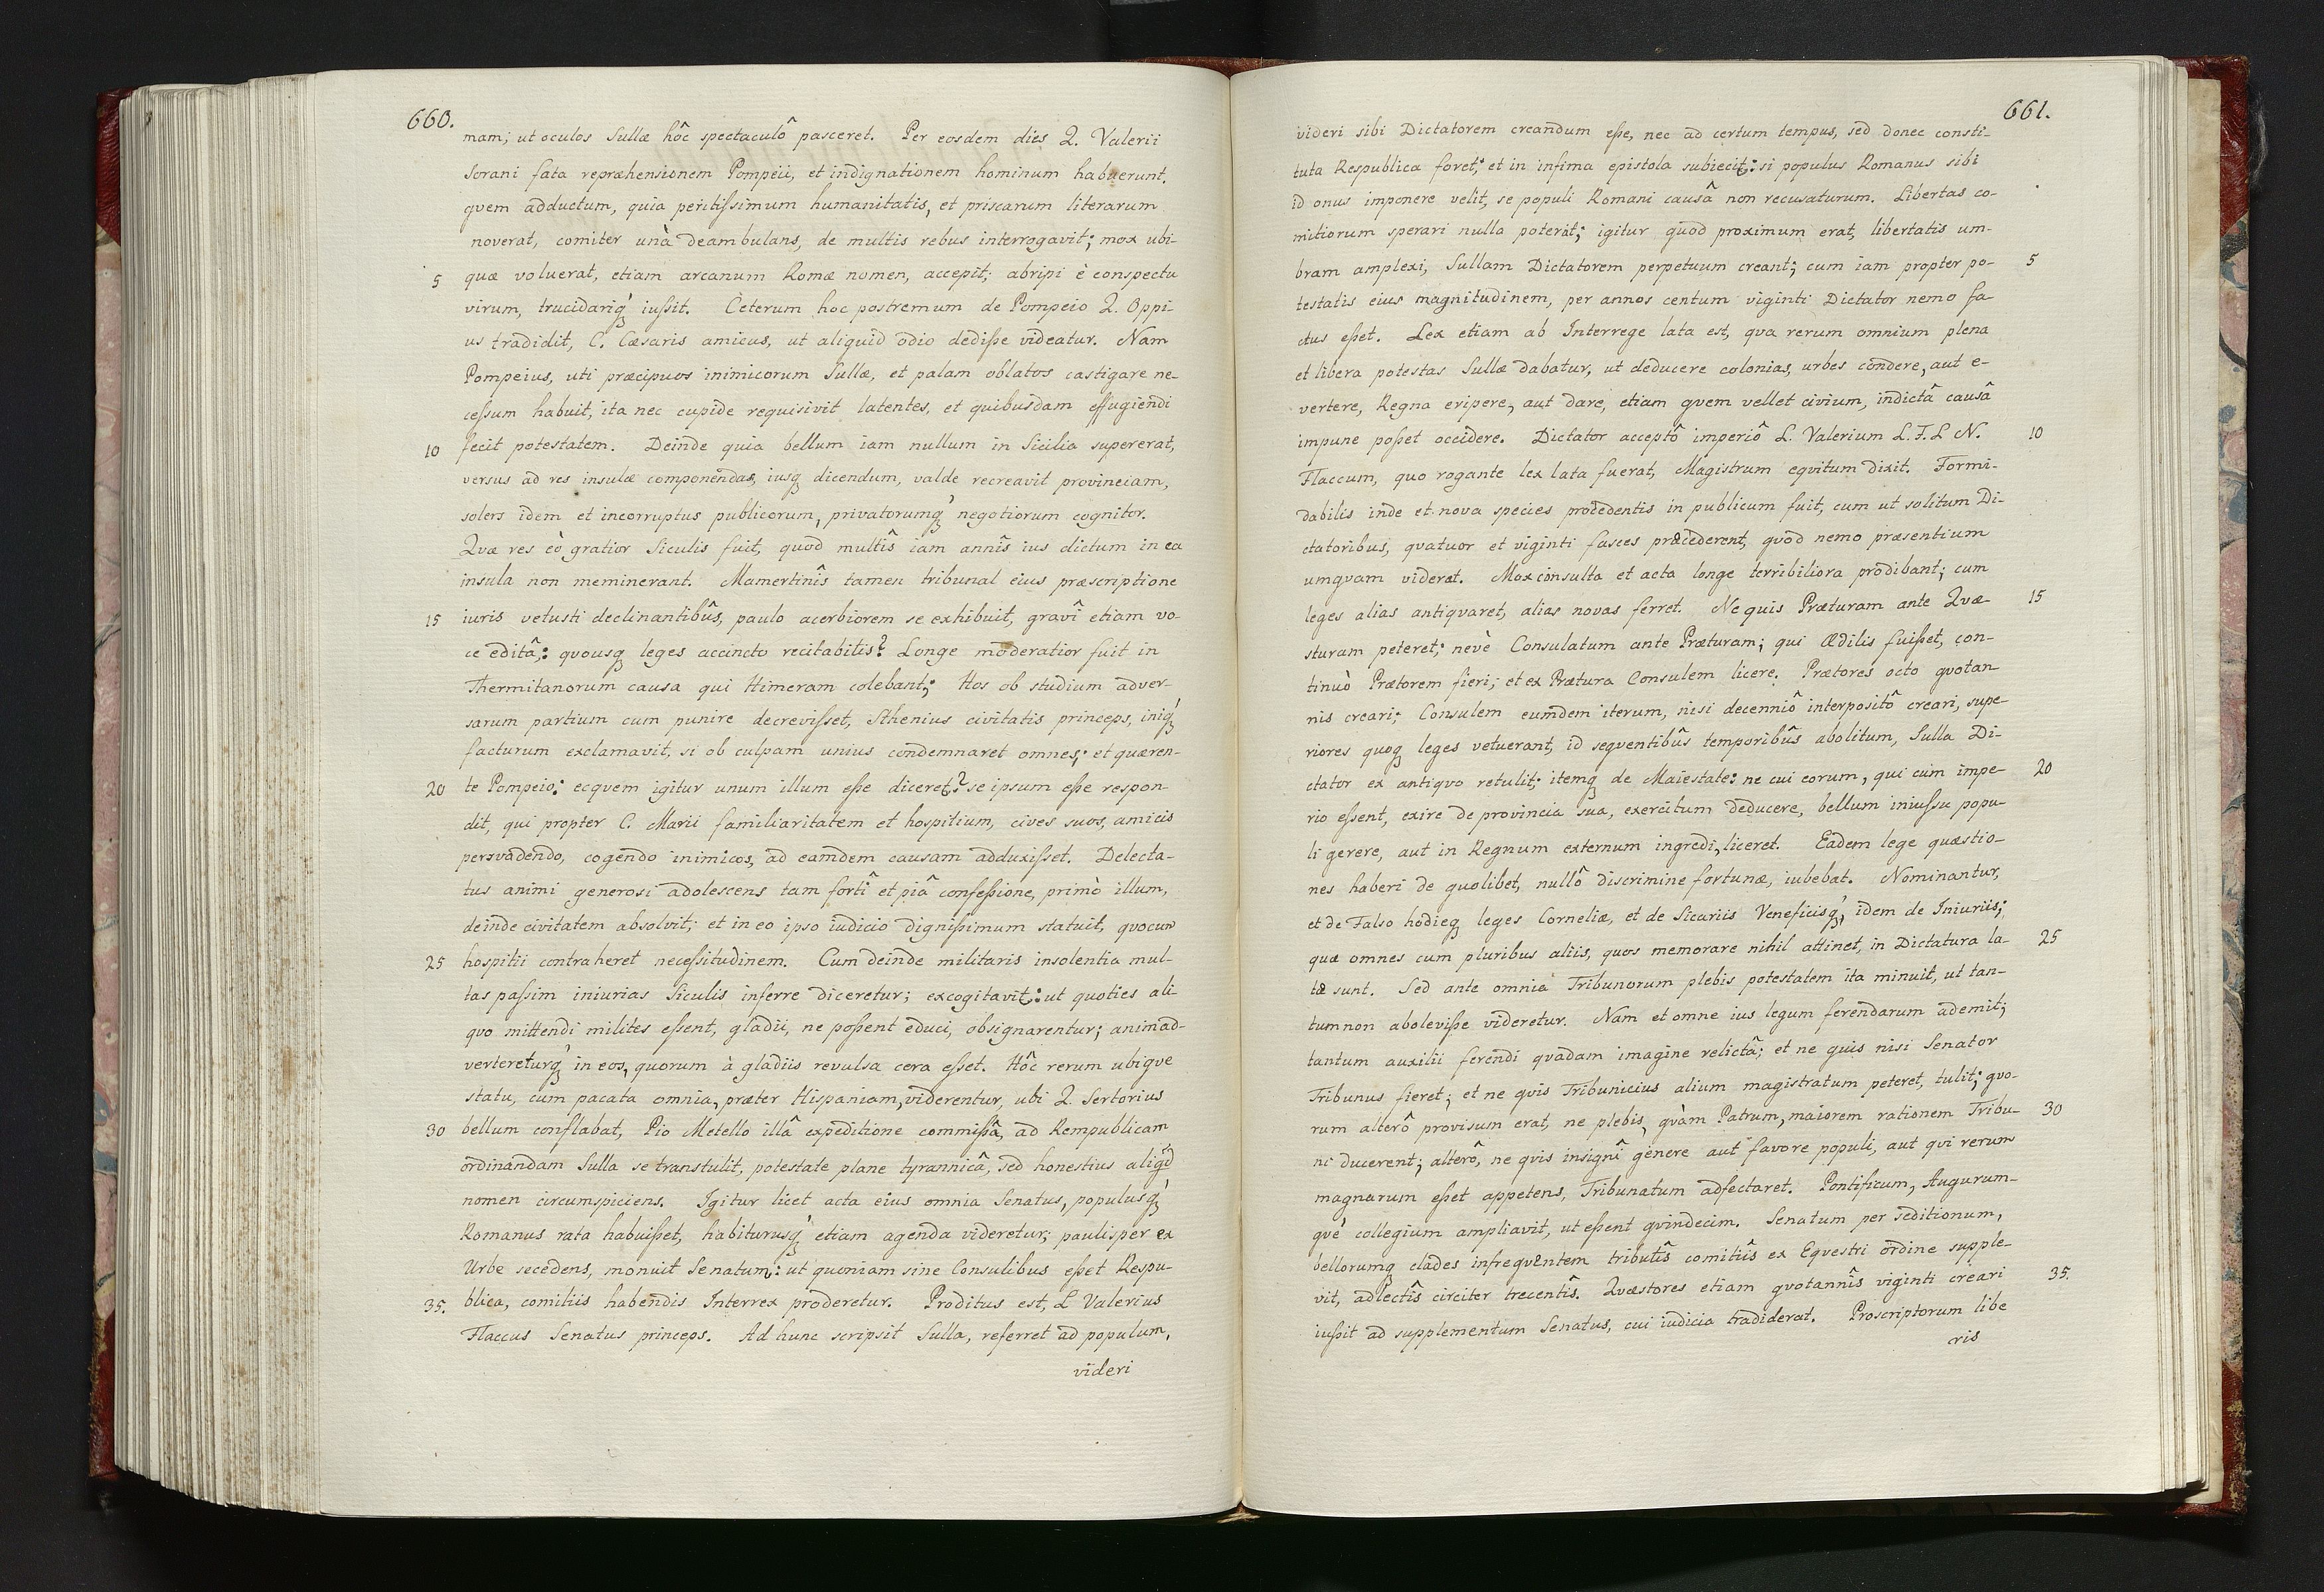 660.
mam; ut oculos Sullæ hôc spectaculô pasceret. Per eosdem dies Q. Valerii
Sorani fata repræhensionem Pompeii, et indignationem hominum habuerunt.
qvem adductum, quia peritißimum humanitatis, et priscarum literarum
noverat, comiter unà deambulans, de multis rebus interrogavit; mox ubi
quæ voluerat, etiam arcanum Romæ nomen, accepit; abripi è conspectu
5
virum, trucidariq́ꝫ iußit. Ceterum hoc postremum de Pompeio Q. Oppi-
us tradidit, C. Cæsaris amicus, ut aliquid odio dediße videatur. Nam
Pompeius, uti præcipuos inimicorum Sullæ, et palam oblatos castigare ne-
ceßum habuit, ita nec cupide requisivit latentes, et quibusdam effugiendi
10
fecit potestatem. Deinde quia bellum iam nullum in Sicilia supererat,
versus ad res insulæ componendas, iusqꝫ dicendum, valde recreavit provinciam,
solers idem et incorruptus publicorum, privatorumq́ꝫ negotiorum cognitor.
Qvæ res eò gratior Siculis fuit, quod multîs iam annîs ius dictum in ea
insula non meminerant. Mamertinîs tamen tribunal eius præscriptione
15
iuris vetusti declinantibûs, paulo acerbiorem se exhibuit, gravî etiam vo-
ce editâ;: qvousqꝫ leges accincto recitabitis? Longe moderatior fuit in
Thermitanorum causa qui Himeram colebant;: Hos ob studium adver-
sarum partium cum punire decrevißset, Sthenius civitatis princeps, iniq́ꝫ
facturum exclamavit, si ob culpam unius condemnaret omnes;: et quæren-
20
te Pompeio: ecqvem igitur unum illum eße diceret? se ipsum eße respon-
dit, qui propter C. Marii familiaritatem et hospitium, cives suos, amicis
persvadendo, cogendo inimicos, ad eamdem causam adduxißset. Delecta-
tus animi generosi adolescens tam fortî et piâ confeßione, primò illum,
deinde civitatem absolvit; et in eo ipso iudicio dignißimum statuit, qvocum
25
hospitii contraheret neceßitudinem. Cum deinde militaris insolentia mul-
tas paßim iniurias Siculis inferre diceretur; excogitavit: ut quoties ali-
qvo mittendi milites eßent, gladii, ne poßent educi, obsignarentur; animad-
vertereturq́ꝫ in eos, quorum à gladiis revulsa cera eßet. Hôc rerum ubiqve
statu, cum pacata omnia, præter Hispaniam, viderentur, ubi Q. Sertorius
30
bellum conflabat, Pio Metello illâ expeditione commißâ, ad Rempublicam
ordinandam Sulla se transtulit, potestate plane tyrannicâ, sed honestius aliq́d
nomen circumspiciens. Igitur licet acta eius omnia Senatus, populusq́ꝫ
Romanus rata habuißet, habiturusq́ꝫ etiam agenda videretur; paulisper ex
Urbe secedens, monuit Senatum: ut quoniam sine Consulibus eßet Respu-
35.
blica, comitiis habendis Interrex proderetur. Proditus est, L Valerius
Flaccus Senatus princeps. Ad hunc scripsit Sulla, referret ad populum,
videri
661.
videri sibi Dictatorem creandum eße, nec ad certum tempus, sed donec consti-
tuta Respublica foret;: et in infima epistola subiecit: si populus Romanus sibi
id onus imponere velit, se populi Romani causâ non recusaturum. Libertas co-
mitiorum sperari nulla poterat; igitur quod proximum erat, libertatis um-
bram amplexi, Sullam Dictatorem perpetuum creant; cum iam propter po-
5
testatis eius magnitudinem, per annos centum viginti Dictator nemo fa-
ctus eßet. Lex etiam ab Interrege lata est, qva rerum omnium plena
et libera potestas Sullæ dabatur, ut deducere colonias, urbes condere, aut e-
vertere, Regna eripere, aut dare, etiam qvem vellet civium, indictâ causâ
impune poßet occidere. Dictator acceptô imperiô L. Valerium L. F. L N.
10
Flaccum, quo rogante lex lata fuerat, Magistrum eqvitum dixit. Formi-
dabilis inde et nova species procedentis in publicum fuit, cum ut solitum Di-
ctatoribus, qvatuor et viginti fasces præcederent, qvod nemo præsentium
umqvam viderat. Mox consulta et acta longe terribiliora prodibant; cum
leges alias antiqvaret, alias novas ferret. Ne quis Præturam ante Qvæ-
15
sturam peteret; nevè Consulatum ante Præturam; qui Ædilis fuißet, con-
tinuò Prætorem fieri; et ex Prætura Consulem licere. Prætores octo qvotan
nis creari; Consulem eumdem iterum, nisi decenniô interpositô creari, supe-
riores quoqꝫ leges vetuerant, id seqventibûs temporibûs abolitum, Sulla Di-
ctator ex antiqvo retulit; itemqꝫ de Maiestate: ne cui eorum, qui cum impe-
20
rio eßent, exire de provincia sua, exercitum deducere, bellum iniußu popu-
li gerere, aut in Regnum externum ingredi, liceret. Eadem lege quæstio-
nes haberi de quolibet, nullô discrimine fortunæ, iubebat. Nominantur,
et de Falso hodieqꝫ leges Corneliæ, et de Sicariis Veneficisq́ꝫ, idem de Iniuriis;
quæ omnes cum pluribus aliis, quos memorare nihil attinet, in Dictatura la-
25
tæ sunt. Sed ante omnia Tribunorum plebis potestatem ita minuit, ut tan-
tum non aboleviße videretur. Nam et omne ius legum ferendarum ademit;
tantum auxilii ferendi qvadam imagine relictâ; et ne quis nisi Senator
Tribunus fieret; et ne qvis Tribunicius alium magistratum peteret, tulit;: qvo-
rum alterô provisum erat, ne plebis, qvàm Patrum, maiorem rationem Tribu-
30
ni ducerent; alterô, ne qvis insignî genere aut favore populi, aut qvi rerum
magnarum eßet appetens, Tribunatum adfectaret. Pontificum, Augurum-
qvè collegium ampliavit, ut eßent qvindecim. Senatum per seditionum,
bellorumqꝫ clades infreqventem tributîs comitiîs ex Eqvestri ordine supple-
vit, adlectîs circiter trecentîs. Qvæstores etiam qvotannîs viginti creari
35.
iußit ad supplementum Senatus, cui iudicia tradiderat. Proscriptorum libe
ris